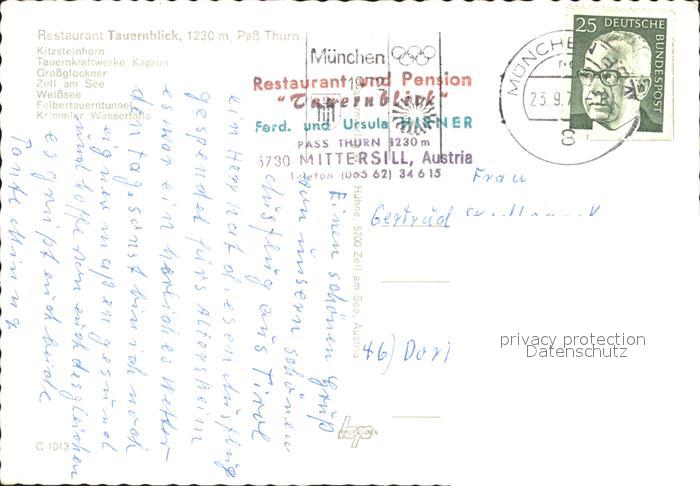 Restaurant Tauernblick, 1230 m, Paß Thurn
Kitzsteinhorn
Tauernkraftwerke Kaprun
Großglockner
Zell am See
Weißsee
Felbertauerntunnel
Krimmler Wasserfälle
C 1013
München
Restaurant und Pension
"Tauernblick"
Ferd. und Ursula HIRNER
PASS THURN 1230 m
5730 MITTERSILL, Austria
Telefon (065 62) 34 6 15
MÜNCHEN
23.9.7
8
25 DEUTSCHE
BUNDESPOST
Hühne, 5700 Zell am See, Austria
Einen schönen Gruß
von unsern schönen
Ausflug aus Tirol
ein Herr hat diesen Ausflug
gespendet fürs Altersheim
es war ein herliches Wetter
den Tag, sonst bin ich noch
eigner maßen gesund
und hoffe von euch desgleichen
es grüßt euch beide
Tante
Frau
Gertrud
46) Dort
privacy protection
Datenschutz